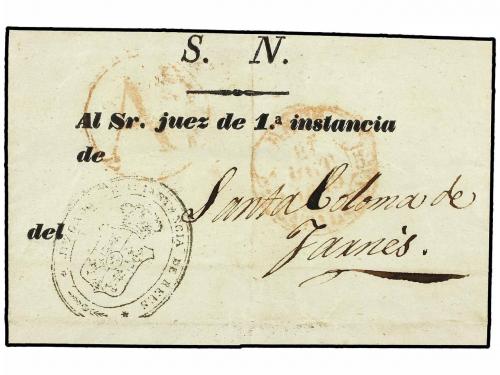 S. N.
Al Sr. juez de 1.ª instancia
de
Santa Coloma de
del
Farnés.
DE REUS